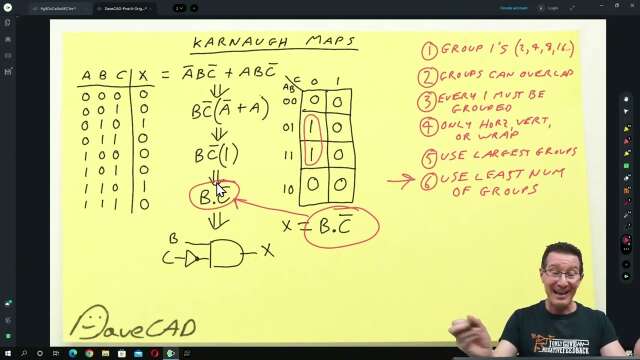 KARNAUGH MAPS
A B C X = A̅BC̅ + ABC̅
0 0 0 0
0 0 1 0
0 1 0 1
0 1 1 0
1 0 0 0
1 0 1 0
1 1 0 1
1 1 1 0
BC̅(A̅+A)
⇓
BC̅(1)
⇓
B.C̅
⇓
B
C
X
AB C 0 1
00 0 0
01 1 0
11 1 0
10 0 0
X = B.C̅
① GROUP 1'S (2,4,8,16..
② GROUPS CAN OVERLAP
③ EVERY 1 MUST BE
GROUPED
④ ONLY HORZ, VERT,
OR WRAP
⑤ USE LARGEST GROUPS
→ ⑥ USE LEAST NUM
OF GROUPS
DaveCAD
NEGATIVE FEEDBACK